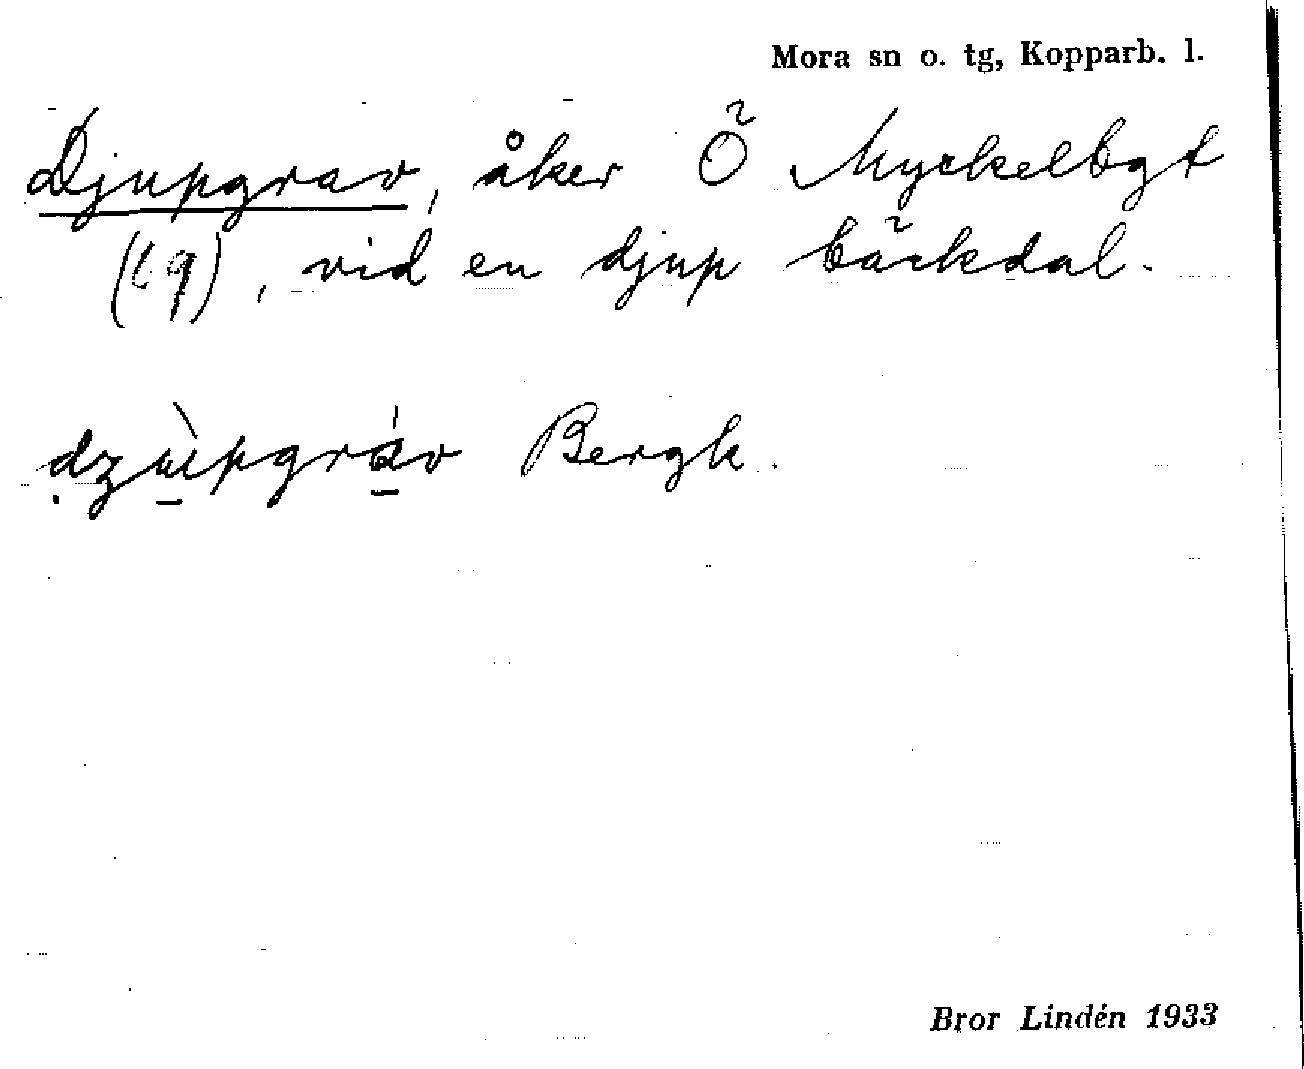 Mora sn o. tg, Kopparb. l.
Djupgrav, åker Ö Myckelbgt
(19), vid en djup bäckdal.
dzùpgráv Bergk.
Bror Lindén 1933